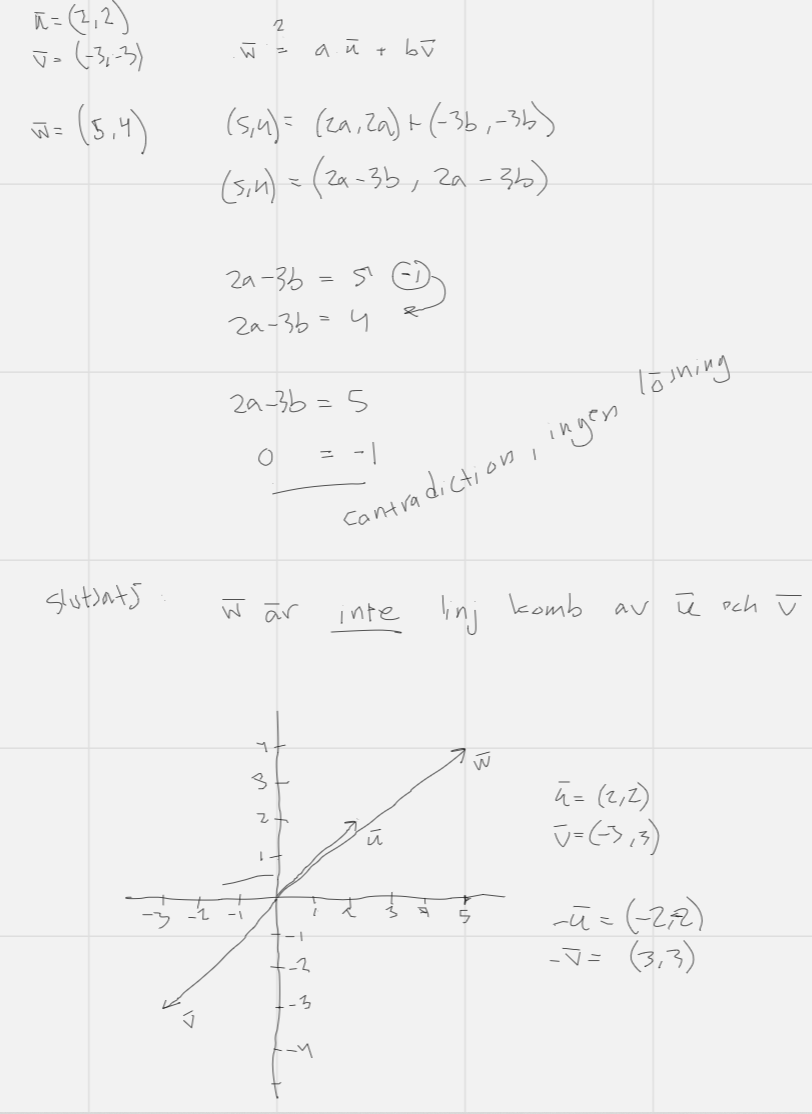 ū = (2,2)
v̄ = (-3,-3)
w̄ ?= a ū + b v̄
w̄ = (5,4)
(5,4) = (2a,2a) + (-3b,-3b)
(5,4) = (2a-3b, 2a-3b)
2a-3b = 5 (-1)
2a-3b = 4
2a-3b = 5
0 = -1
contradiction, ingen lösning
slutsats:
w̄ är inte linj komb av ū och v̄
4
3
2
1
-3 -2 -1 1 2 3 4 5
-1
-2
-3
-4
w̄
ū
v̄
ū = (2,2)
v̄ = (-3,3)
-ū = (-2,-2)
-v̄ = (3,3)